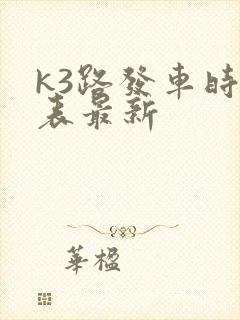 k3路發車時
表最新
華楹